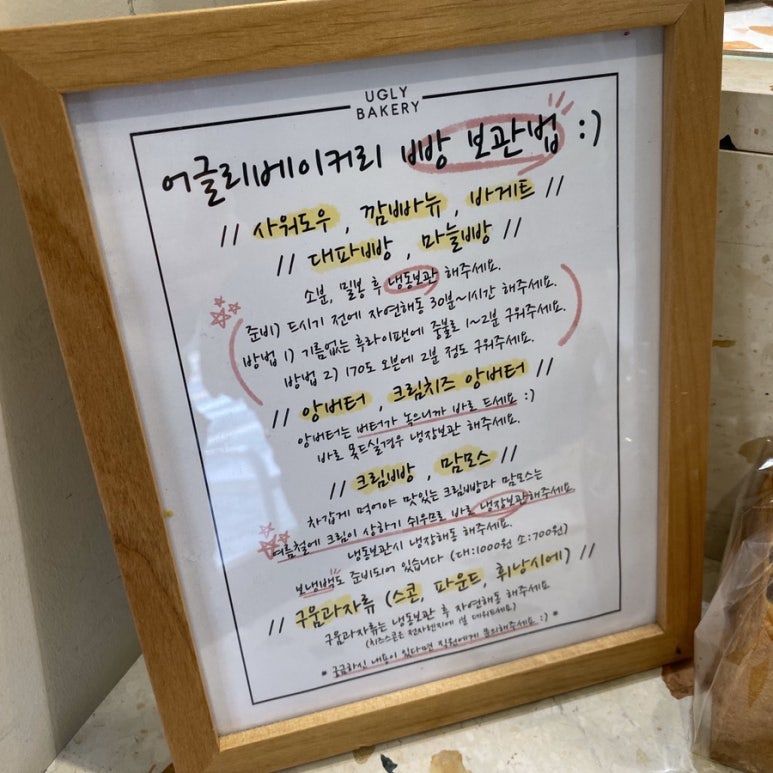 UGLY
BAKERY
어글리베이커리 빵 보관법 :)
// 사워도우, 깜빠뉴, 바게트 //
// 대파빵, 마늘빵 //
소분, 밀봉 후 냉동보관 해주세요.
준비) 드시기 전에 자연해동 30분~1시간 해주세요.
방법 1) 기름없는 후라이팬에 중불로 1~2분 구워주세요.
방법 2) 170도 오븐에 2분 정도 구워주세요.
// 앙버터, 크림치즈 앙버터 //
앙버터는 버터가 녹으니까 바로 드세요 :)
바로 못드실경우 냉장보관 해주세요.
// 크림빵, 맘모스 //
차갑게 먹어야 맛있는 크림빵과 맘모스는
여름철에 크림이 상하기 쉬우므로 바로 냉장보관해주세요
냉동보관시 냉장해동 해주세요.
보냉백도 준비되어 있습니다 (대:1000원 소:700원)
// 구움과자류 (스콘, 파운드, 휘낭시에) //
구움과자류는 냉동보관 후 자연해동 해주세요
(치즈스콘은 전자렌지에 데워드세요)
* 궁금하신 내용이 있다면 직원에게 문의해주세요 :) *